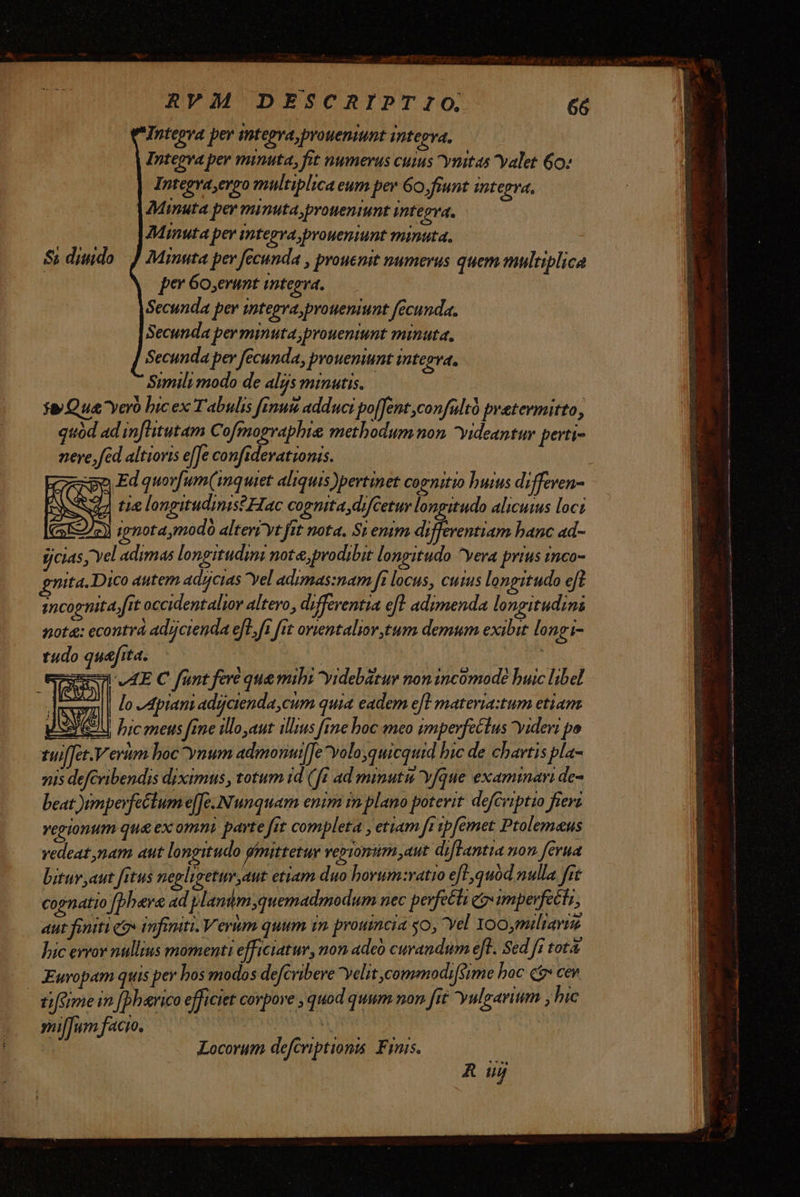 RVM DESCRIPTIO. 66
Integra per integra, proueniunt integra.
Integra per minuta, fit numerus cuius vnitas valet 60:
Integra, ergo multiplica eum per 60, fiunt integra.
Minuta per minuta, proueniunt integra.
Minuta per integra, proueniunt minuta.
Si diuido Minuta per secunda, prouenit numerus quem multiplica
per 60, erunt integra.
Secunda per integra, proueniunt secunda.
Secunda per minuta, proueniunt minuta.
Secunda per secunda, proueniunt integra.
Simili modo de alijs minutis.
Quæ verò hic ex Tabulis sinuū adduci possent, consultò prætermitto,
quòd ad institutam Cosmographiæ methodum non videantur perti-
nere, sed altioris esse considerationis.
Ed quorsum (inquiet aliquis) pertinet cognitio huius differen-
tiæ longitudinis? Hac cognita, discetur longitudo alicuius loci
ignota, modò alteri vt sit nota. Si enim differentiam hanc ad-
ijcias, vel adimas longitudini notæ, prodibit longitudo vera prius inco-
gnita. Dico autem adijcias vel adimas: nam si locus, cuius longitudo est
incognita, sit occidentalior altero, differentia est adimenda longitudini
notæ: econtrà adijcienda est, si sit orientalior, tum demum exibit longi-
tudo quæsita.
AE C sunt ferè quæ mihi videbātur non incōmodè huic libel
lo Apiani adijcienda, cùm quia eadem est materia: tum etiam
hic meus sine illo, aut illius sine hoc meo imperfectus videri po
tuisset. Verùm hoc vnum admonuisse volo, quicquid hic de chartis pla-
nis describendis diximus, totum id (si ad minutū vsque examinari de-
beat) imperfectum esse. Nunquam enim in plano poterit descriptio fieri
regionum quæ ex omni parte sit completa, etiam si ipsemet Ptolemæus
redeat, nam aut longitudo omittetur regionum, aut distantia non serua
bitur, aut situs negligetur, aut etiam duo horum: ratio est, quòd nulla sit
cognatio sphæræ ad planum, quemadmodum nec perfecti & imperfecti,
aut finiti & infiniti. Verùm quum in prouincia 50, vel 100, miliariū
hic error nullius momenti efficiatur, non adeò curandum est. Sed si totā
Europam quis per hos modos describere velit, commodissime hoc & cer
tissime in sphærico efficiet corpore, quod quum non sit vulgarium, hic
missum facio.
Locorum descriptionis Finis.
R iij